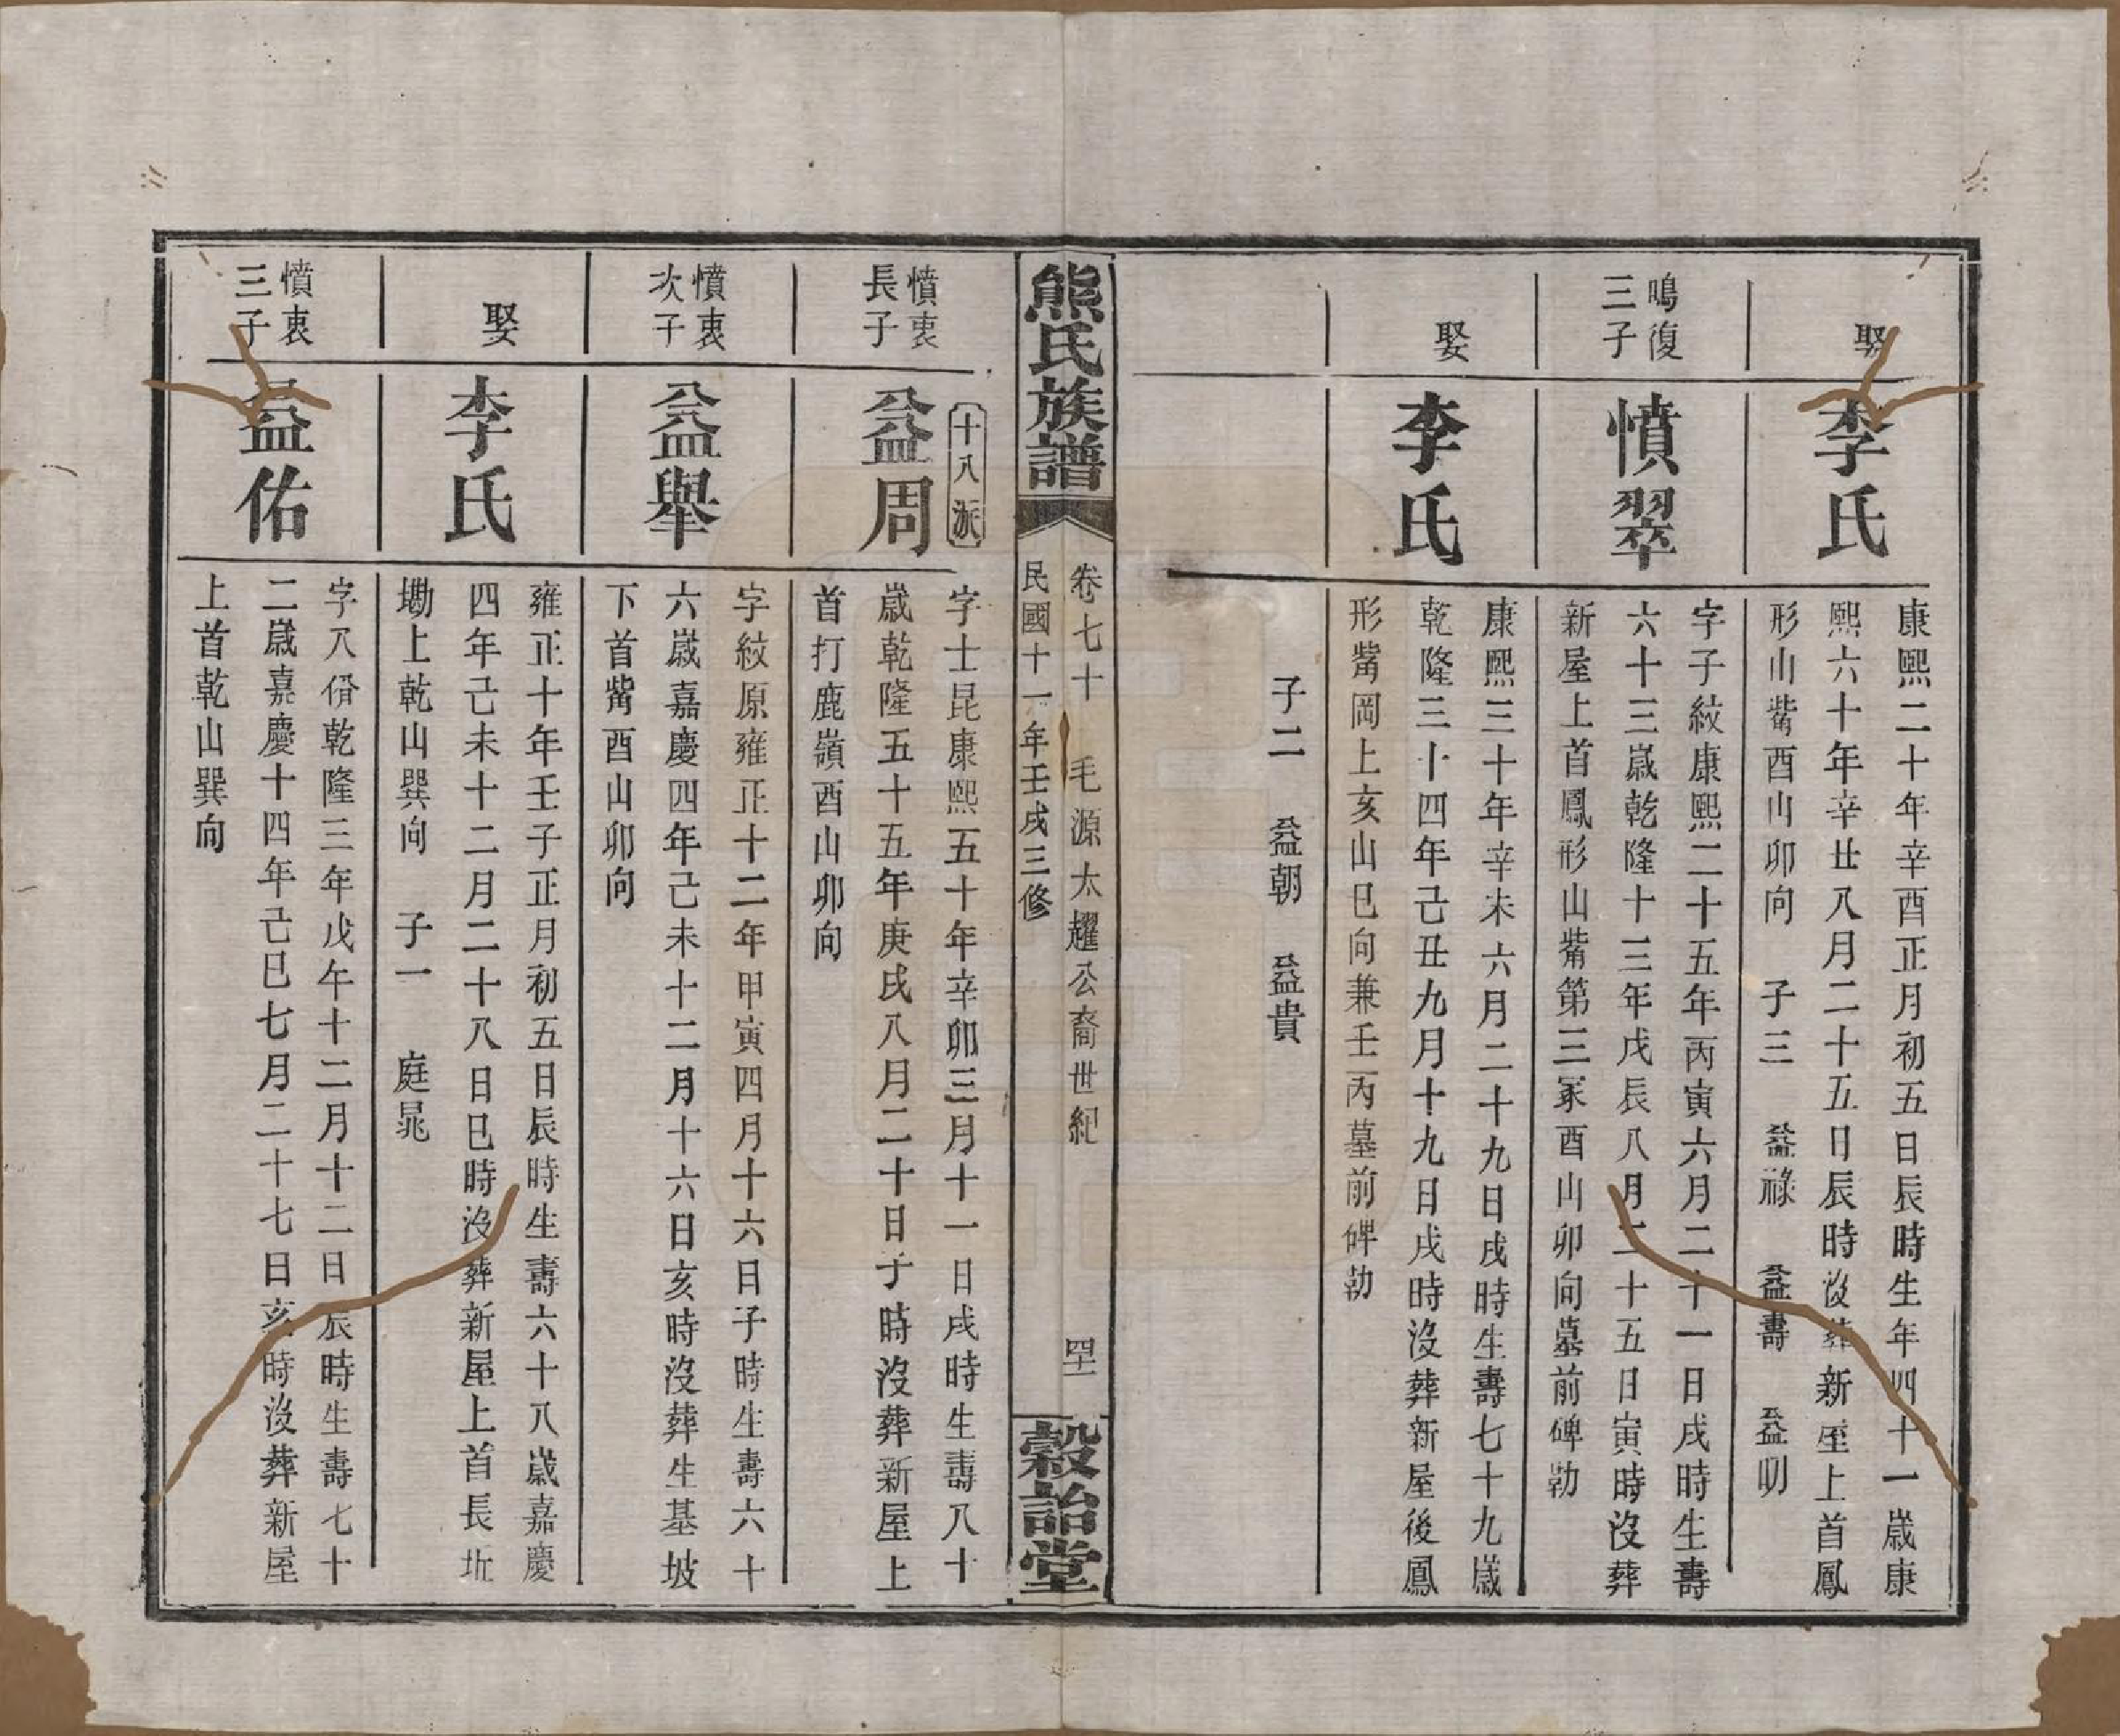 娶
李氏
康熙二十年辛酉正月初五日辰時生年四十一歲康
熙六十年辛丑八月二十五日辰時沒葬新屋上首鳳
形山觜酉山卯向　子三　益祿　益壽　益明
鳴復
三子
憤翠
字子紋康熙二十五年丙寅六月二十一日戌時生壽
六十三歲乾隆十三年戊辰八月二十五日寅時沒葬
新屋上首鳳形山觜第三冢酉山卯向墓前碑勒
娶
李氏
康熙三十年辛未六月二十九日戌時生壽七十九歲
乾隆三十四年己丑九月十九日戌時沒葬新屋後鳳
形觜岡上亥山巳向兼壬丙墓前碑勒
子二　益朝　益貴
熊氏族譜
卷七十　毛源太耀公裔世紀　四十一
民國十一年壬戌三修
穀詒堂
十八派
憤衷
長子
益周
字士昆康熙五十年辛卯三月十一日戌時生壽八十
歲乾隆五十五年庚戌八月二十日子時沒葬新屋上
首打鹿嶺酉山卯向
憤衷
次子
益舉
字紋原雍正十二年甲寅四月十六日子時生壽六十
六歲嘉慶四年己未十二月十六日亥時沒葬生基坡
下首觜酉山卯向
娶
李氏
雍正十年壬子正月初五日辰時生壽六十八歲嘉慶
四年己未十二月二十八日巳時沒葬新屋上首長坵
墈上乾山巽向　子一　庭晁
憤衷
三子
益佑
字八俏乾隆三年戊午十二月十二日辰時生壽七十
二歲嘉慶十四年己巳七月二十七日亥時沒葬新屋
上首乾山巽向